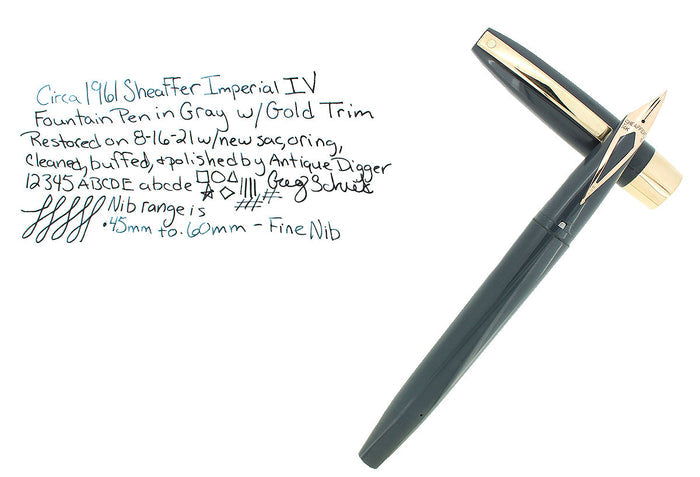 Circa 1961 Sheaffer Imperial IV
Fountain Pen in Gray w/ Gold Trim
Restored on 8-16-21 w/new sac, oring,
cleaned, buffed, + polished by Antique Digger
12345 ABCDE abcde
Nib range is
.45mm to .60mm - Fine Nib
SHEAFFER
14K